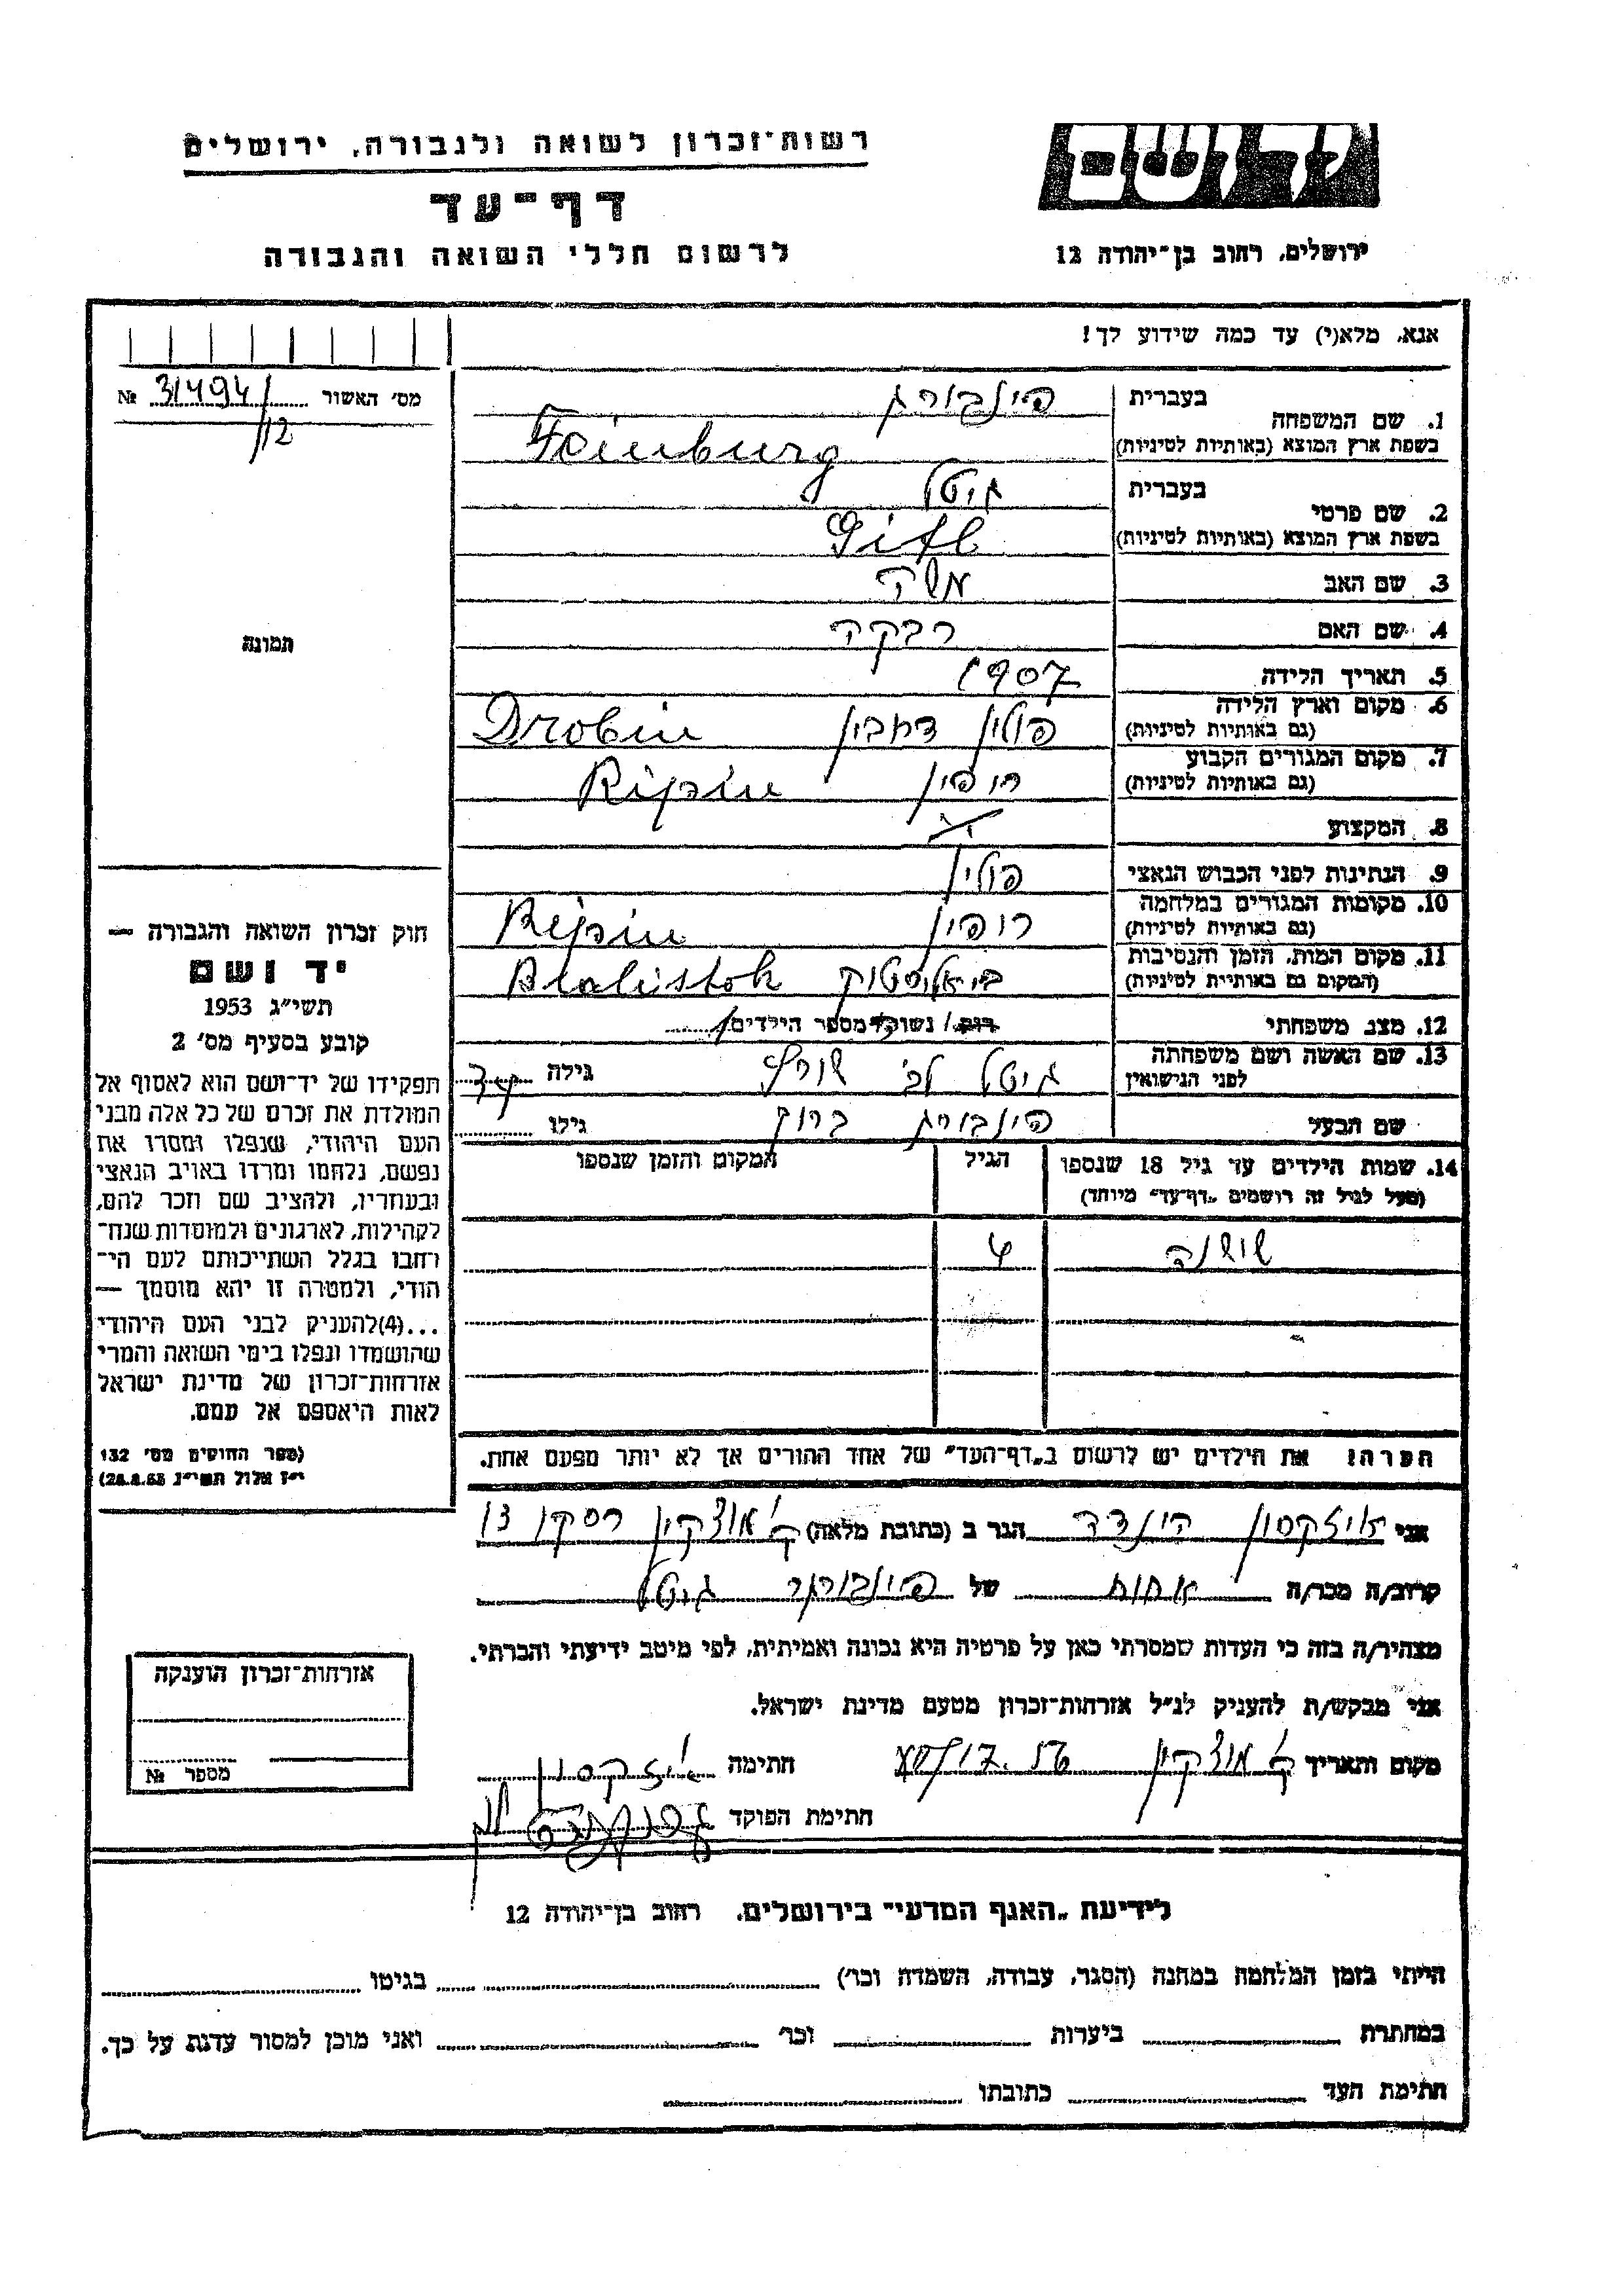 רשות־זכרון לשואה ולגבורה, ירושלים
יד ושם
דף־עד
לרשום חללי השואה והגבורה
ירושלים, רחוב בן־יהודה 12
אנא, מלא(י) עד כמה שידוע לך!
מס׳ האשור 31494/ №
/12
תמונה
חוק זכרון השואה והגבורה —
יד ושם
תשי״ג 1953
קובע בסעיף מס׳ 2
תפקידו של יד־ושם הוא לאסוף אל
המולדת את זכרם של כל אלה מבני
העם היהודי, שנפלו ומסרו את
נפשם, נלחמו ומרדו באויב הנאצי
ובעוזריו, ולהציב שם וזכר להם,
לקהילות, לארגונים ולמוסדות שנח־
רבו בגלל השתייכותם לעם הי־
הודי, ולמטרה זו יהא מוסמך —
...(4)להעניק לבני העם היהודי
שהושמדו ונפלו בימי השואה והמרי
אזרחות־זכרון של מדינת ישראל
לאות היאספם אל עמם.
(ספר החוקים מס׳ 132
י״ז אלול תשי״ג 28.8.53)
בעברית פינבורג
1. שם המשפחה
בשפת ארץ המוצא (באותיות לטיניות) Feinburg
בעברית גיטל
2. שם פרטי
בשפת ארץ המוצא (באותיות לטיניות) Gitl
3. שם האב משה
4. שם האם רבקה
5. תאריך הלידה 1907
6. מקום וארץ הלידה פולין דרובין Drobin
(גם באותיות לטיניות)
7. מקום המגורים הקבוע ריפין Ripin
(גם באותיות לטיניות)
8. המקצוע
9. הנתינות לפני הכבוש הנאצי פולין
10. מקומות המגורים במלחמה ריפין Ripin
(גם באותיות לטיניות)
11. מקום המות, הזמן והנסיבות ביאליסטוק Bialistok
(המקום גם באותיות לטיניות)
12. מצב משפחתי רווק/ נשוי מספר הילדים 1
13. שם האשה ושם משפחתה גיטל לב׳ שורץ גילה
לפני הנישואין
שם הבעל פינבורג ברוך גילו
14. שמות הילדים עד גיל 18 שנספו הגיל המקום והזמן שנספו
(מעל לגיל זה רושמים „דף־עד״ מיוחד)
שושנה 4
הערה: את הילדים יש לרשום ב„דף־העד״ של אחד ההורים אך לא יותר מפעם אחת.
אני איזקסון הינדה הגר ב (כתובת מלאה) ק׳ מוצקין רסקו
קרוב/ה מכר/ה אחות של פינבורג גיטל
מצהיר/ה בזה כי העדות שמסרתי כאן על פרטיה היא נכונה ואמיתית, לפי מיטב ידיעתי והכרתי.
אני מבקש/ת להעניק לנ״ל אזרחות־זכרון מטעם מדינת ישראל.
מקום ותאריך ק׳ מוצקין חתימה איזקסון
חתימת הפוקד
אזרחות־זכרון הוענקה
מספר №
לידיעת „האגף המדעי״ בירושלים, רחוב בן־יהודה 12
הייתי בזמן המלחמה במחנה (הסגר, עבודה, השמדה וכו׳) בגיטו
במחתרת ביערות וכו׳ ואני מוכן למסור עדות על כך.
חתימת העד כתובתו